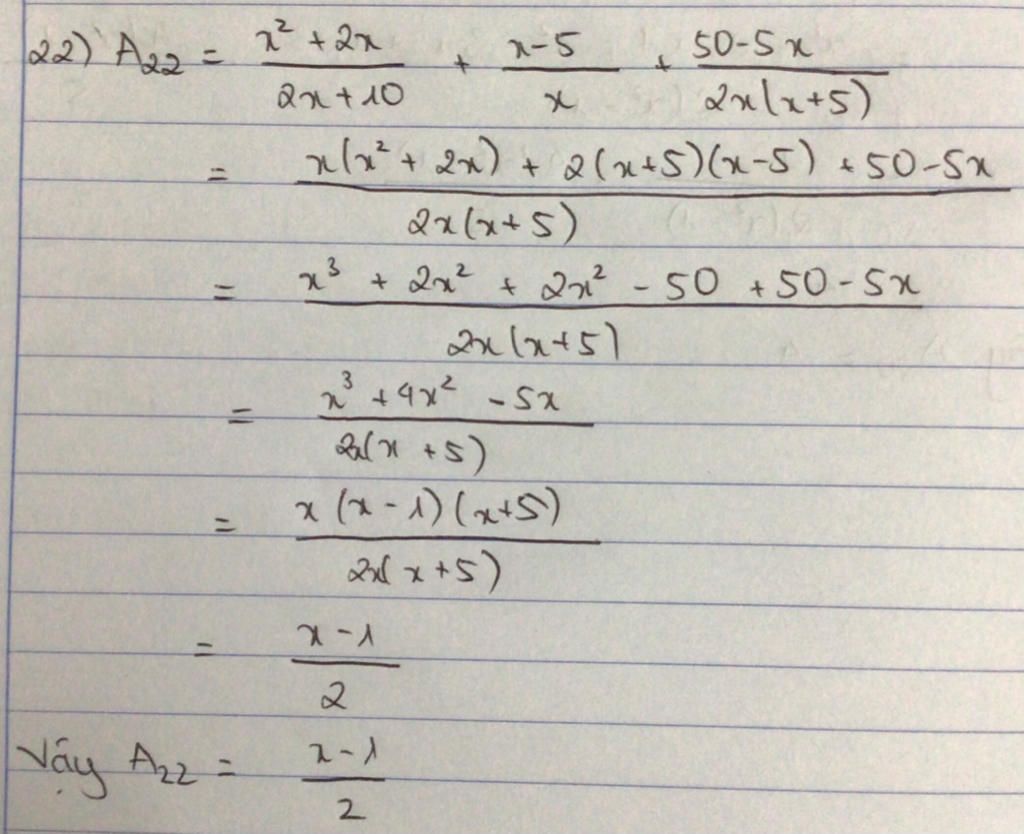 22) A₂₂ = (x² + 2x)/(2x + 10) + (x - 5)/x + (50 - 5x)/(2x(x + 5))
= (x(x² + 2x) + 2(x + 5)(x - 5) + 50 - 5x)/(2x(x + 5))
= (x³ + 2x² + 2x² - 50 + 50 - 5x)/(2x(x + 5))
= (x³ + 4x² - 5x)/(2x(x + 5))
= (x(x - 1)(x + 5))/(2x(x + 5))
= (x - 1)/2
Vậy A₂₂ = (x - 1)/2